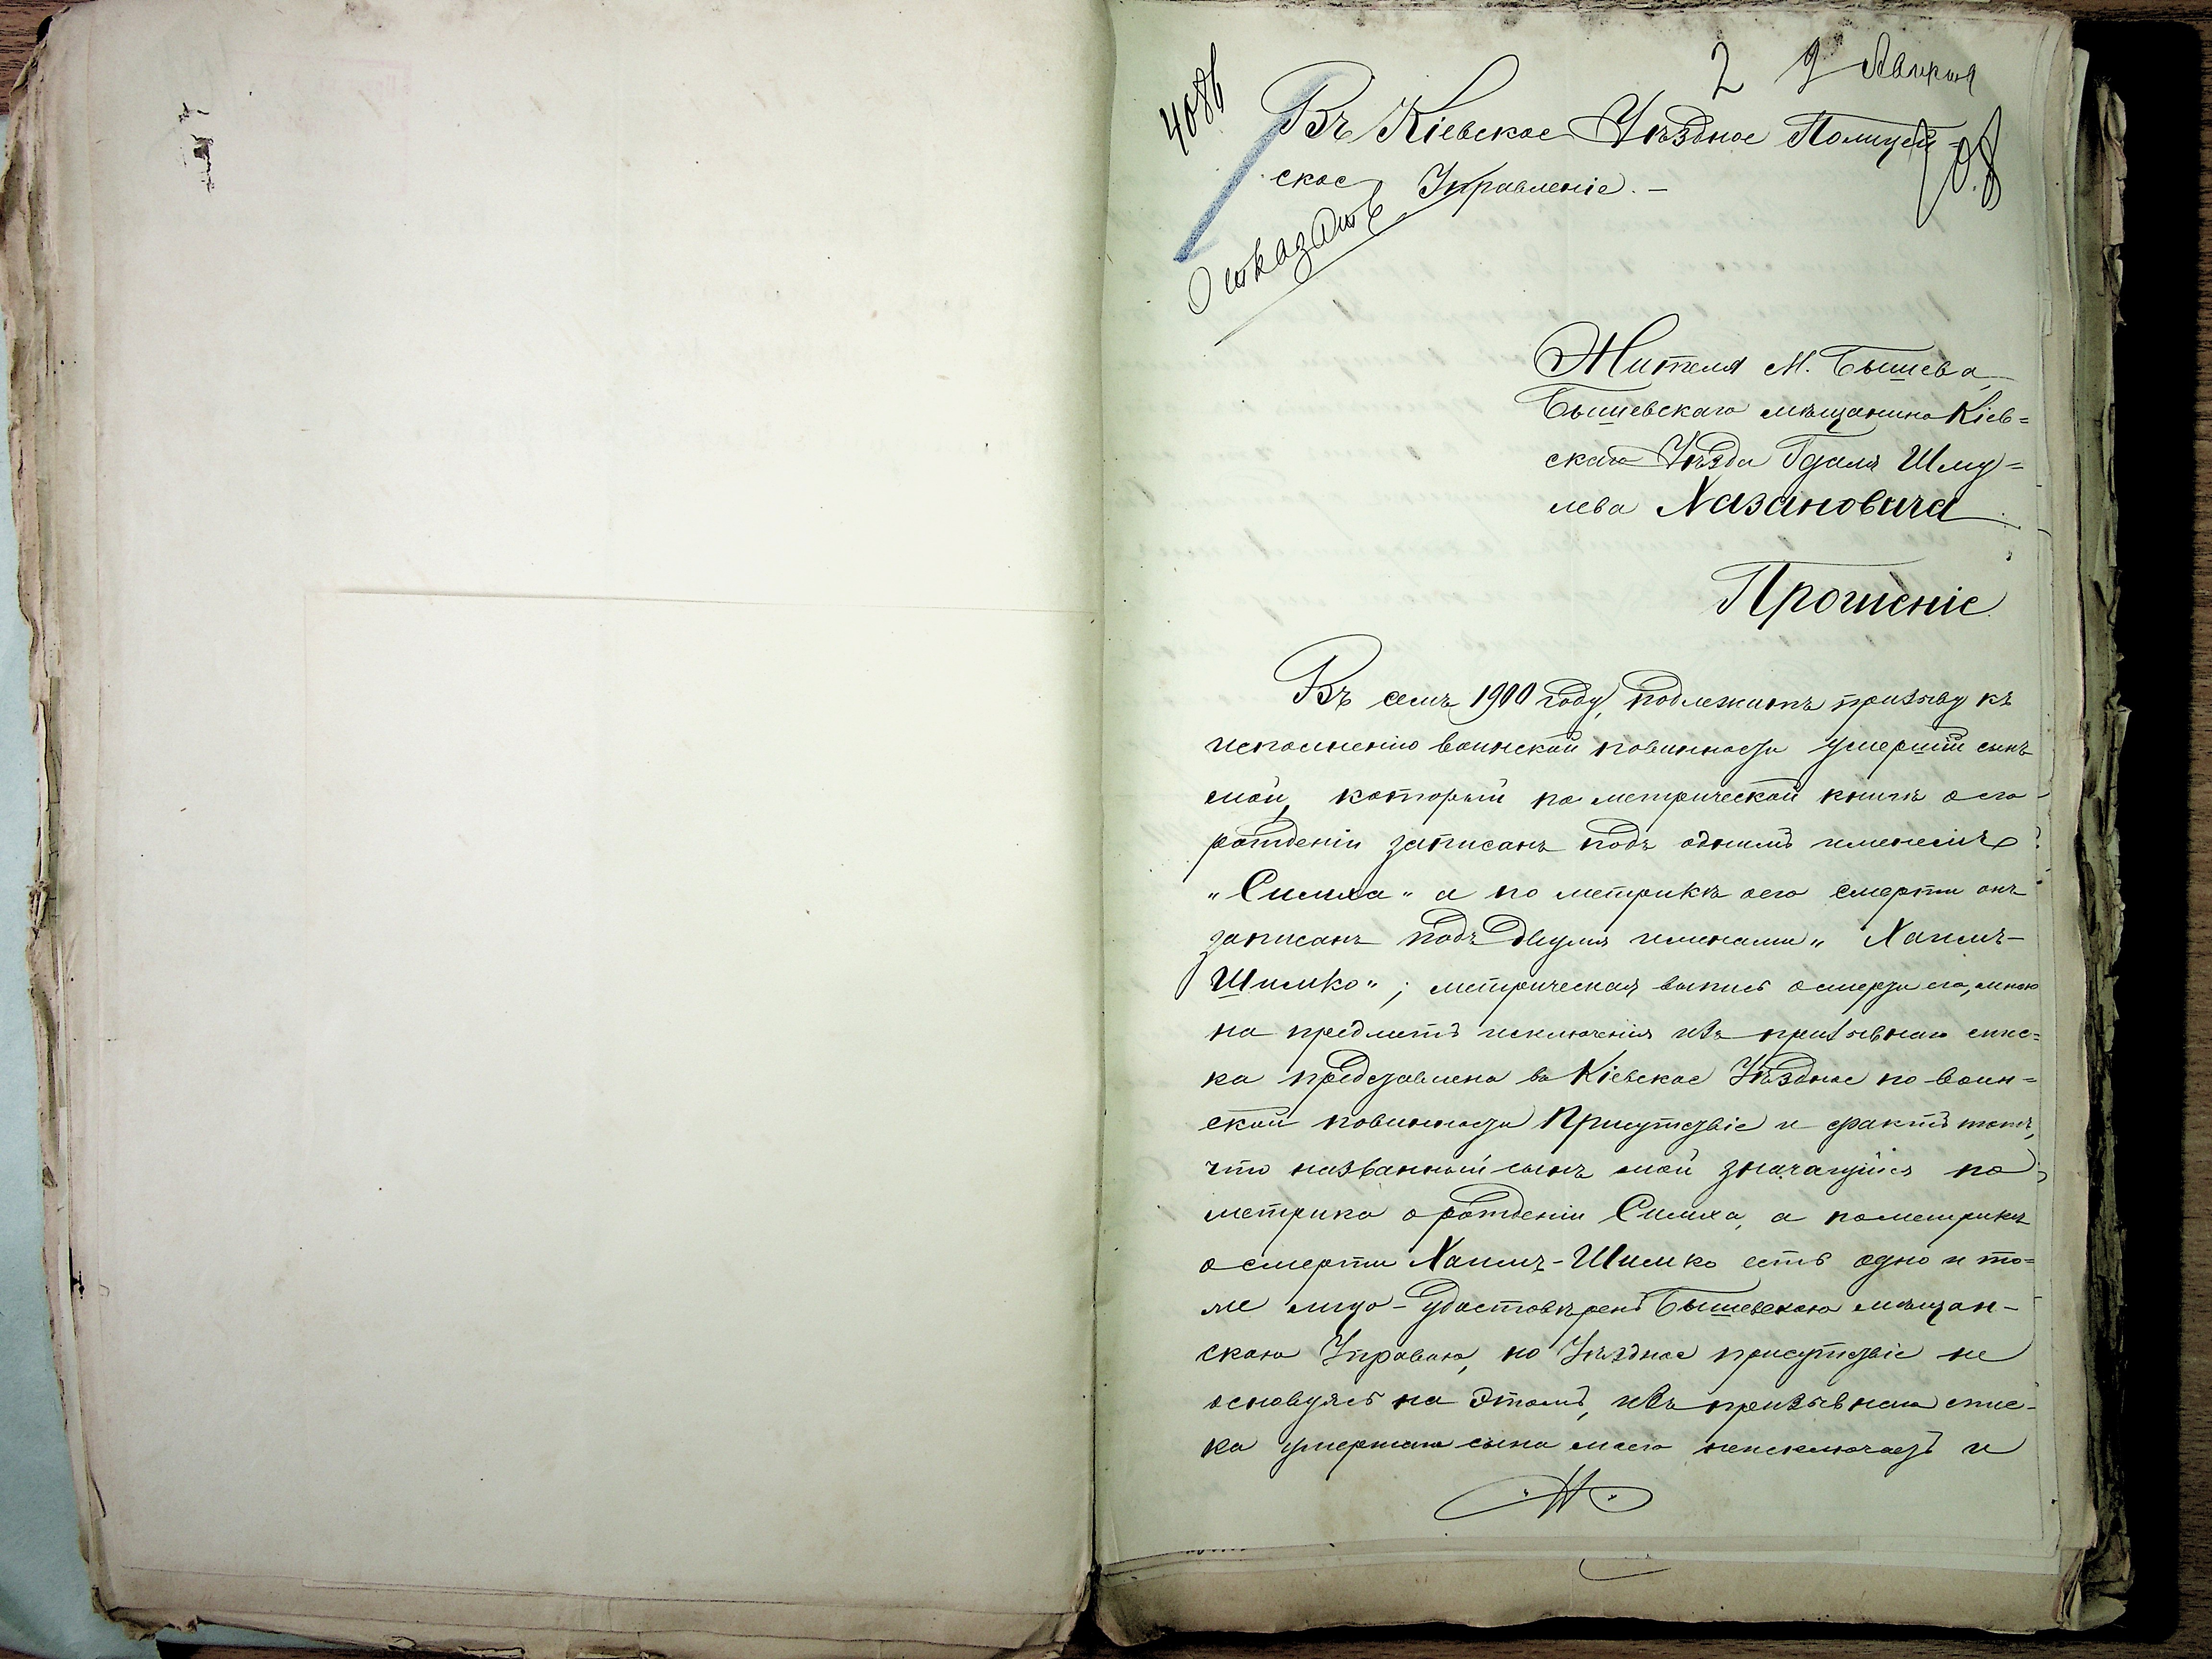 4086
2 9 Апреля
Въ Кіевское Уѣздное Полицей-
ское Управленіе. –
Отказать
Жителя М. Бышева
Бышевскаго мѣщанина Кіев=
скаго Уѣзда Гдаля Шму=
лева Хазановича
Прошеніе
Въ семъ 1900 году, подлежитъ призыву къ
исполненію воинской повинности умершій сынъ
мой, который по метрической книгѣ о его
рожденіи записанъ подъ однимъ именемъ
„Симха" а по метрикѣ о его смерти онъ
записанъ подъ двумя именами „Хаимъ-
Шимко"; метрическая выпись о смерти его, мною
на предметъ исключенія изъ призывнаго спис=
ка представлена въ Кіевское Уѣздное по воин=
ской повинности Присутствіе и фактъ тотъ,
что названный сынъ мой значащійся по
метрике о рожденіи Симха, а по метрикѣ
о смерти Хаимъ-Шимко есть одно и то=
же лицо – удостовѣренъ Бышевскою мѣщан-
скою Управою, но Уѣздное присутствіе не
основуясь на этомъ, изъ призывнаго спис-
ка умершаго сына моего неисключаетъ и